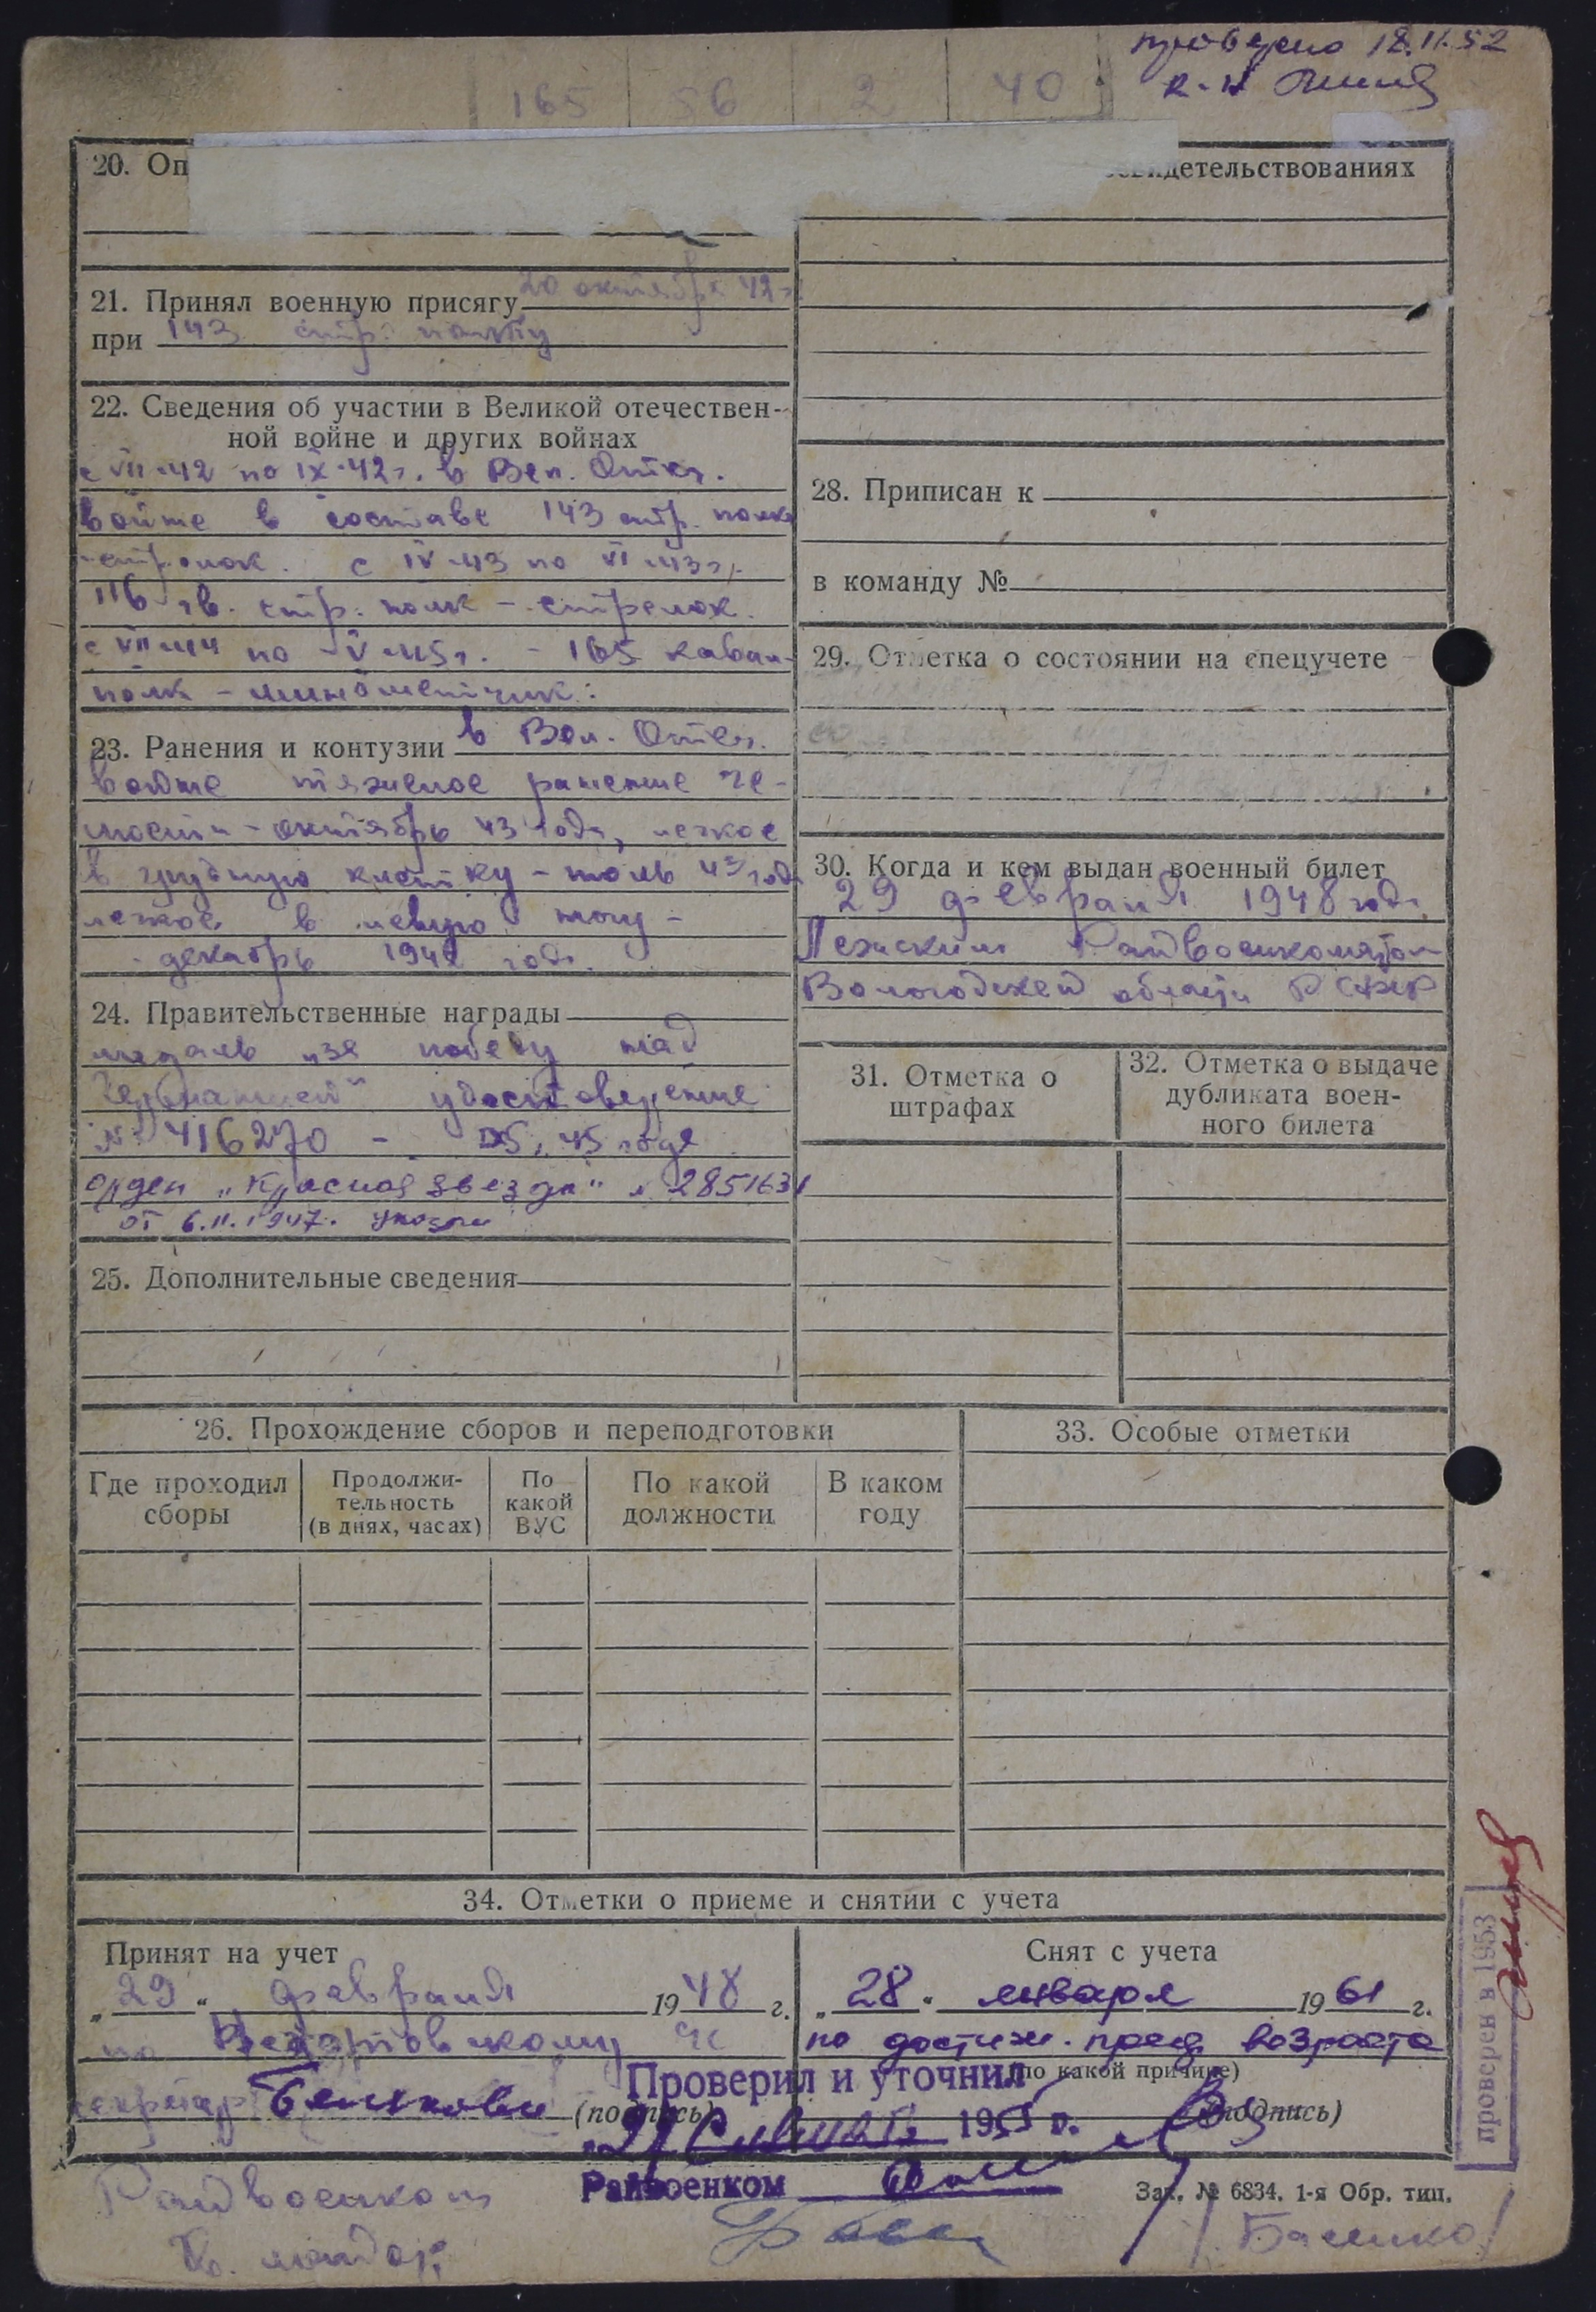 проверено 18.II.52
165 56 2 40
20. Оп
детельствованиях
21. Принял военную присягу 20 октября 42 г.
при 143 стр. полку
22. Сведения об участии в Великой отечествен-
ной войне и других войнах
с VII-42 по IX-42г. в Вел. Отеч.
войне в составе 143 стр. полка
-стрелок. с IV-43 по VI-43г.
116 гв. стр. полк - стрелок.
с VII-44 по V-45г. - 165 кавал-
полк - минометчик.
23. Ранения и контузии в Вел. Отеч.
войне тяжелое ранение че-
люсти - октябрь 43 года, легкое
в грудную клетку - июль 43 года
легкое в левую ногу -
декабрь 1942 года.
24. Правительственные награды
медаль "за победу над
Германией" удостоверение
№ 416270 - 45 года
орден "Красная звезда" № 2851631
от 6.II.1947. указы
25. Дополнительные сведения
28. Приписан к
в команду №
29. Отметка о состоянии на спецучете
30. Когда и кем выдан военный билет
29 февраля 1948 года
Лежским Райвоенкоматом
Вологодской области РСФСР
31. Отметка о
штрафах
32. Отметка о выдаче
дубликата воен-
ного билета
26. Прохождение сборов и переподготовки
33. Особые отметки
Где проходил
сборы
Продолжи-
тельность
(в днях, часах)
По
какой
ВУС
По какой
должности
В каком
году
34. Отметки о приеме и снятии с учета
Принят на учет
"29" февраля 1948 г.
по
секретарь
(подпись)
Снят с учета
"28" января 1961 г.
по достиж. пред возраста
(по какой причине)
(подпись)
Проверил и уточнил
195 г.
Райвоенком
Зак. № 6834. 1-я Обр. тип.
Райвоенком
майор
проверен в 1953